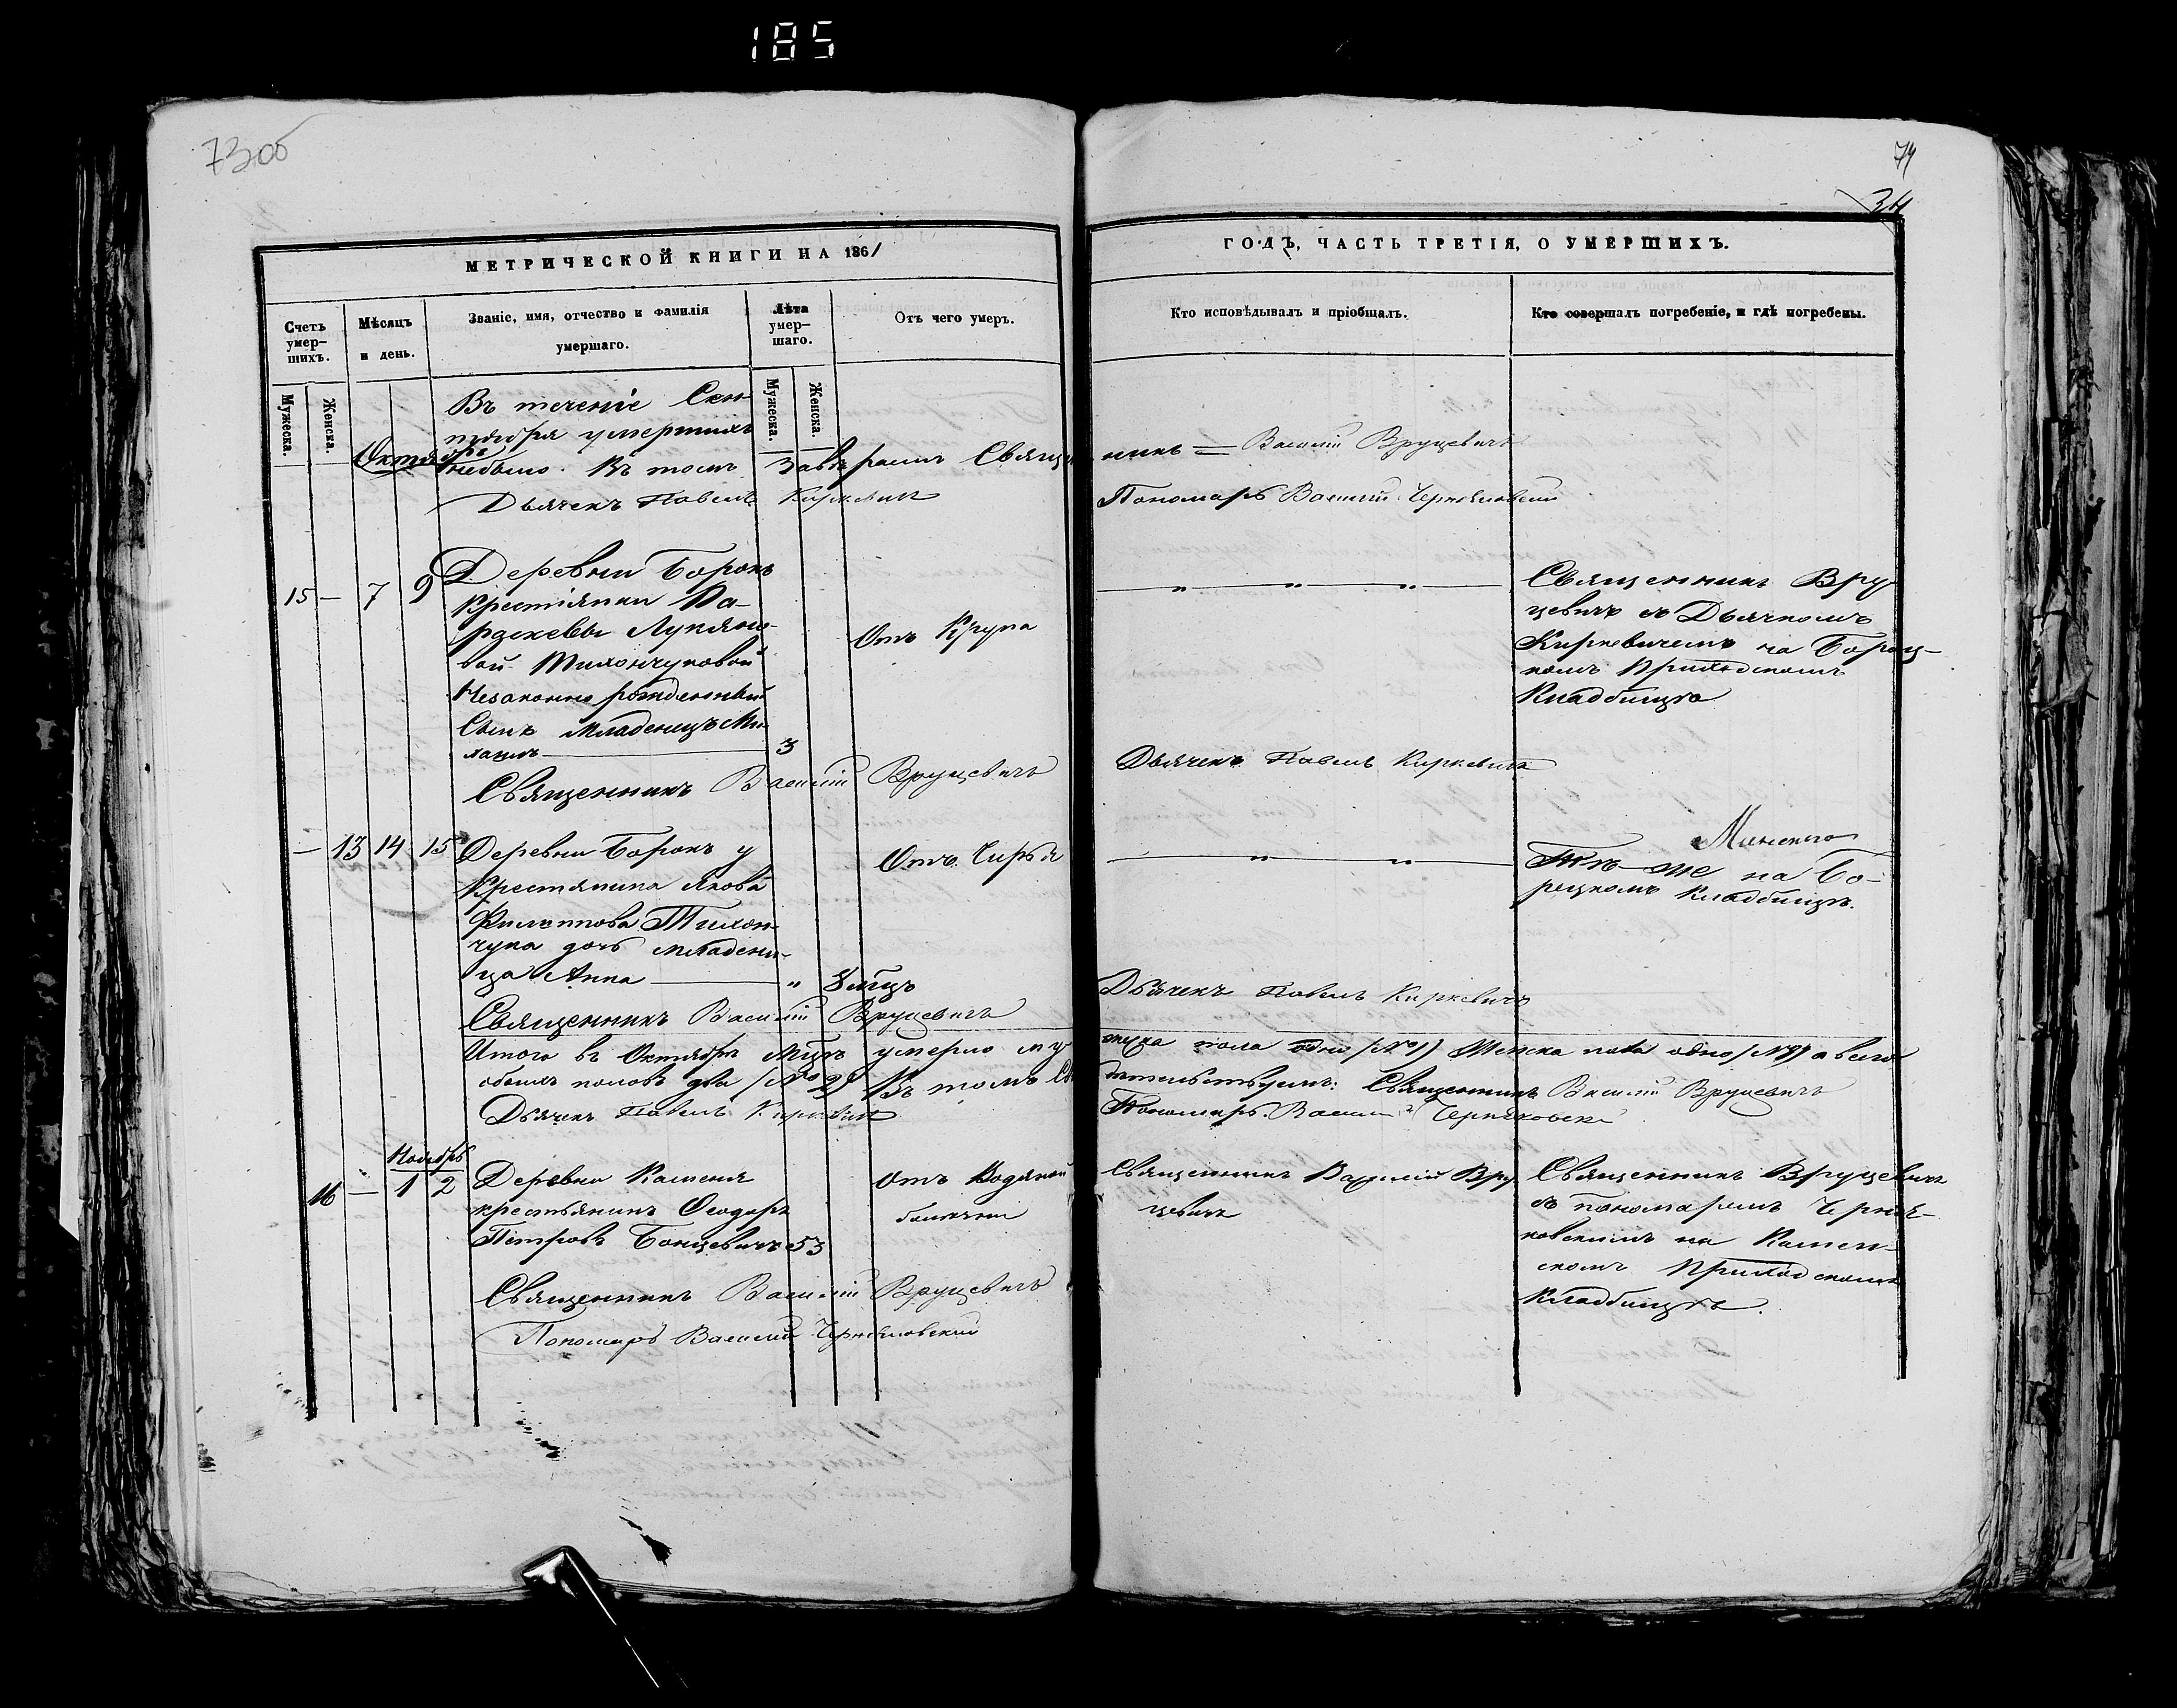 185
73об
74
34
МЕТРИЧЕСКОЙ КНИГИ НА 1861
ГОДЪ, ЧАСТЬ ТРЕТІЯ, О УМЕРШИХЪ.
Счетъ умер-
шихъ.
Мѣсяцъ
и день.
Званіе, имя, отчество и фамилія
умершаго.
Лѣта
умер-
шаго.
Отъ чего умеръ.
Кто исповѣдывалъ и пріобщалъ.
Кто совершалъ погребеніе, и гдѣ погребены.
Мужеска.
Женска.
Мужеска.
Женска.
Въ теченіе Сен
тября умершихъ
Октябрь
небыло. Въ томъ Свящ
никъ Василій Вруцевичъ
Дьячекъ Павелъ Киркевичъ
Пономарь Василій
15 — 7 9 Деревни Борокъ
Крестіянки Па-
Лукяно-
вой Тихончуковой
Незаконно рожденный
Сынъ младенецъ Ми
хаилъ 3
Отъ Крупа
Священникъ Вру
цевичъ съ Дьячкомъ
Киркевичемъ на Борец-
комъ Приходскомъ
Кладбищѣ
Священникъ Василій Вруцевичъ
Дьячекъ Павелъ Киркевичъ
— 13 14 15 Деревни Борокъ у
Крестянина Якова
Филиппова Тихон-
чука дочь младени-
ца Анна „ 8 мцъ
Отъ Чирья
Тѣ-же на Бо-
рецкомъ Кладбищѣ.
Священникъ Василій Вруцевичъ
Дьячекъ Павелъ Киркевичъ
Итого въ Октябрѣ мцѣ умерло му
жеска пола одно (№ 1) Женска пола одно а всего
обоихъ половъ два (№ 2) Въ томъ Сви
дѣтельствуемъ: Священникъ Василій Вруцевичъ
Дьячекъ Павелъ Киркевичъ
Пономарь Василій
Ноябрь
16 — 1 2 Деревни Каменя
крестьянинъ Ѳеодоръ
Петровъ Бонцевичъ 53
отъ Водяной
болѣзни
Священникъ Василій Вру
цевичъ
Священникъ Вруцевичъ
съ пономаремъ Черня-
ковскимъ на Камен-
скомъ Приходскомъ
Кладбищѣ.
Священникъ Василій Вруцевичъ
Пономарь Василій